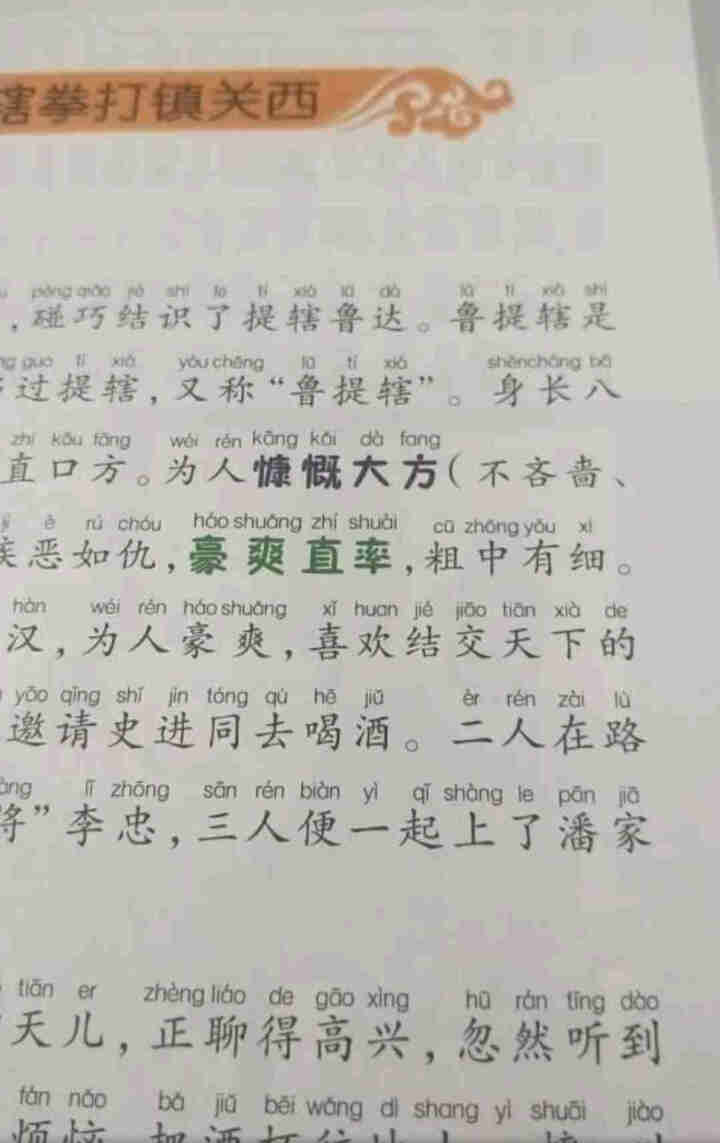 辖拳打镇关西
pèng qiǎo jié shí le tí xiá lǔ dá lǔ tí xiá shì
，碰巧结识了提辖鲁达。鲁提辖是
guo tí xiá yòu chēng lǔ tí xiá shēn cháng bā
过提辖，又称“鲁提辖”。身长八
zhí kǒu fāng wéi rén kāng kǎi dà fang
直口方。为人慷慨大方（不吝啬、
jí è rú chóu háo shuǎng zhí shuài cū zhōng yǒu xì
疾恶如仇，豪爽直率，粗中有细。
hàn wéi rén háo shuǎng xǐ huan jié jiāo tiān xià de
汉，为人豪爽，喜欢结交天下的
yāo qǐng shǐ jìn tóng qù hē jiǔ èr rén zài lù
邀请史进同去喝酒。二人在路
jiàng lǐ zhōng sān rén biàn yì qǐ shàng le pān jiā
将”李忠，三人便一起上了潘家
tiān er zhèng liáo de gāo xìng hū rán tīng dào
天儿，正聊得高兴，忽然听到
fán nǎo bǎ jiǔ bēi wǎng dì shang yì shuāi jiào
烦恼